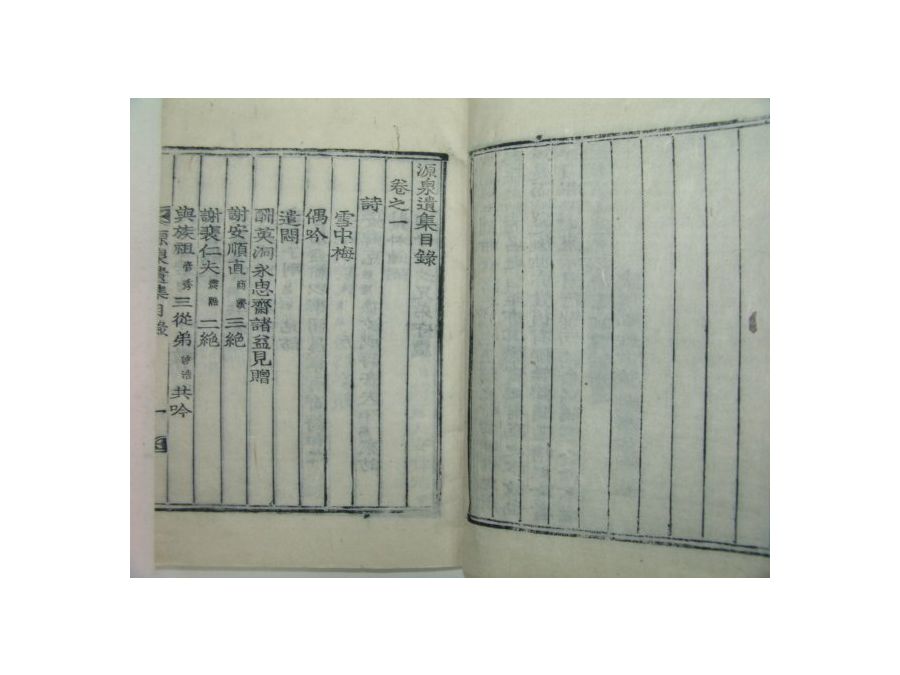 源泉遺集目錄
卷之一
詩
雪中梅
偶吟
遣悶
酬英洞永思齋諸益見贈
謝安順直 三絶
謝裵仁夫 二絶
與族祖 三從弟 共吟
源泉遺集目錄 一